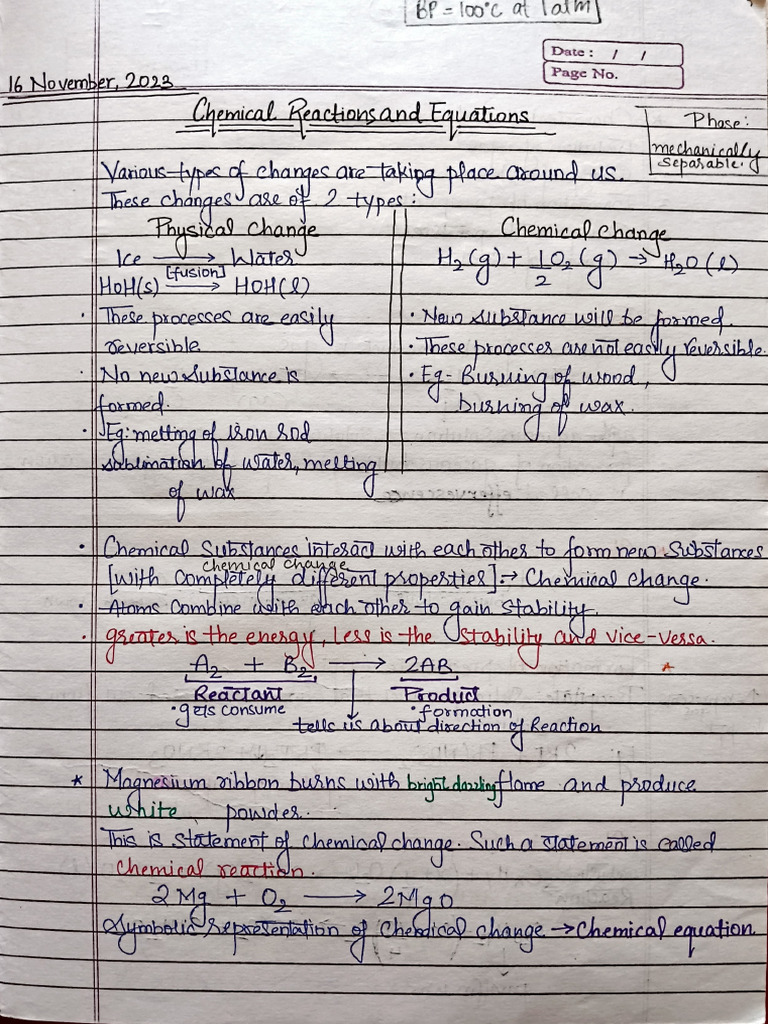 BP = 100°C at 1 atm
Date : / /
Page No.
16 November, 2023
Chemical Reactions and Equations
Phase:
mechanically
separable.
Various types of changes are taking place around us.
These changes are of 2 types :
Physical Change
Ice → Water
[fusion]
HOH(s) → HOH(l)
· These processes are easily
reversible.
· No new substance is
formed.
· Eg: melting of iron rod
sublimation of water, melting
of wax
Chemical change
H₂(g) + 1/2 O₂(g) → H₂O(l)
· New substance will be formed.
· These processes are not easily reversible.
· Eg- Burning of wood,
burning of wax.
· Chemical Substances interact with each other to form new Substances
chemical change
[with completely different properties] → Chemical change.
· Atoms combine with each other to gain stability.
· greater is the energy, less is the stability and vice-vessa.
A₂ + B₂ → 2AB *
Reactant Product
· gets consume · formation
tells us about direction of Reaction
* Magnesium ribbon burns with bright dazzling flame and produce
white powder.
This is statement of chemical change. Such a statement is called
chemical reaction.
2Mg + O₂ → 2MgO
Symbolic representation of Chemical change → Chemical equation.